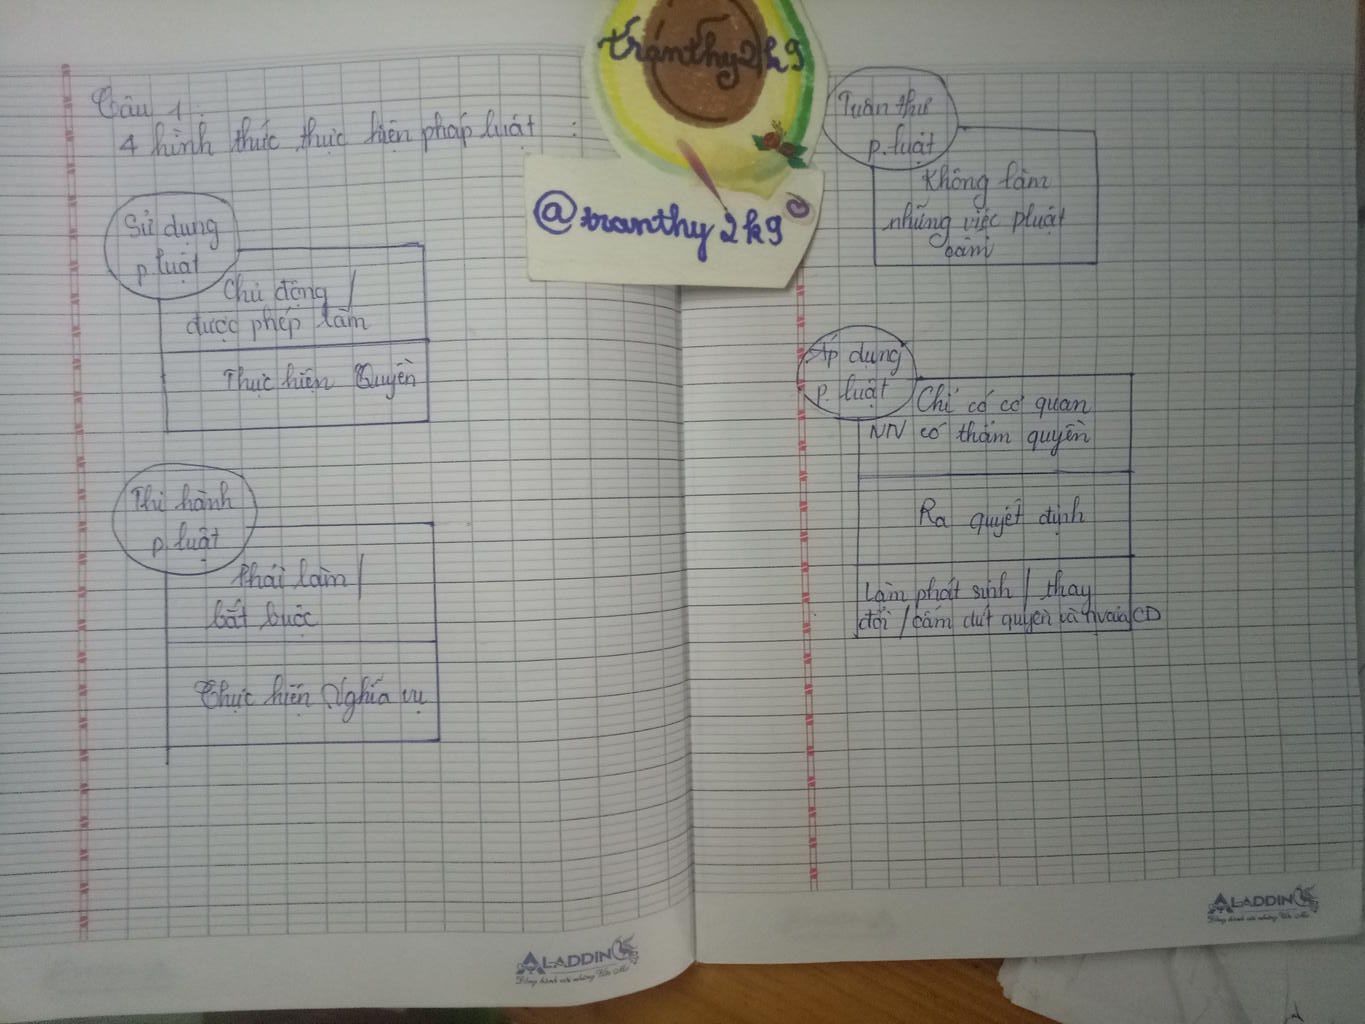 Câu 1:
4 hình thức thực hiện pháp luật :
Sử dụng
p.luật
Chủ động /
được phép làm
Thực hiện Quyền
Thi hành
p.luật
Phải làm /
bắt buộc
Thực hiện Nghĩa vụ
tranthy2k9
@tranthy2k9
Tuân thủ
p.luật
Không làm
những việc pluật
cấm
Áp dụng
p.luật
Chỉ có cơ quan
NN có thẩm quyền
Ra quyết định
Làm phát sinh / thay
đổi / chấm dứt quyền và nv của CD
ALADDIN
ALADDIN